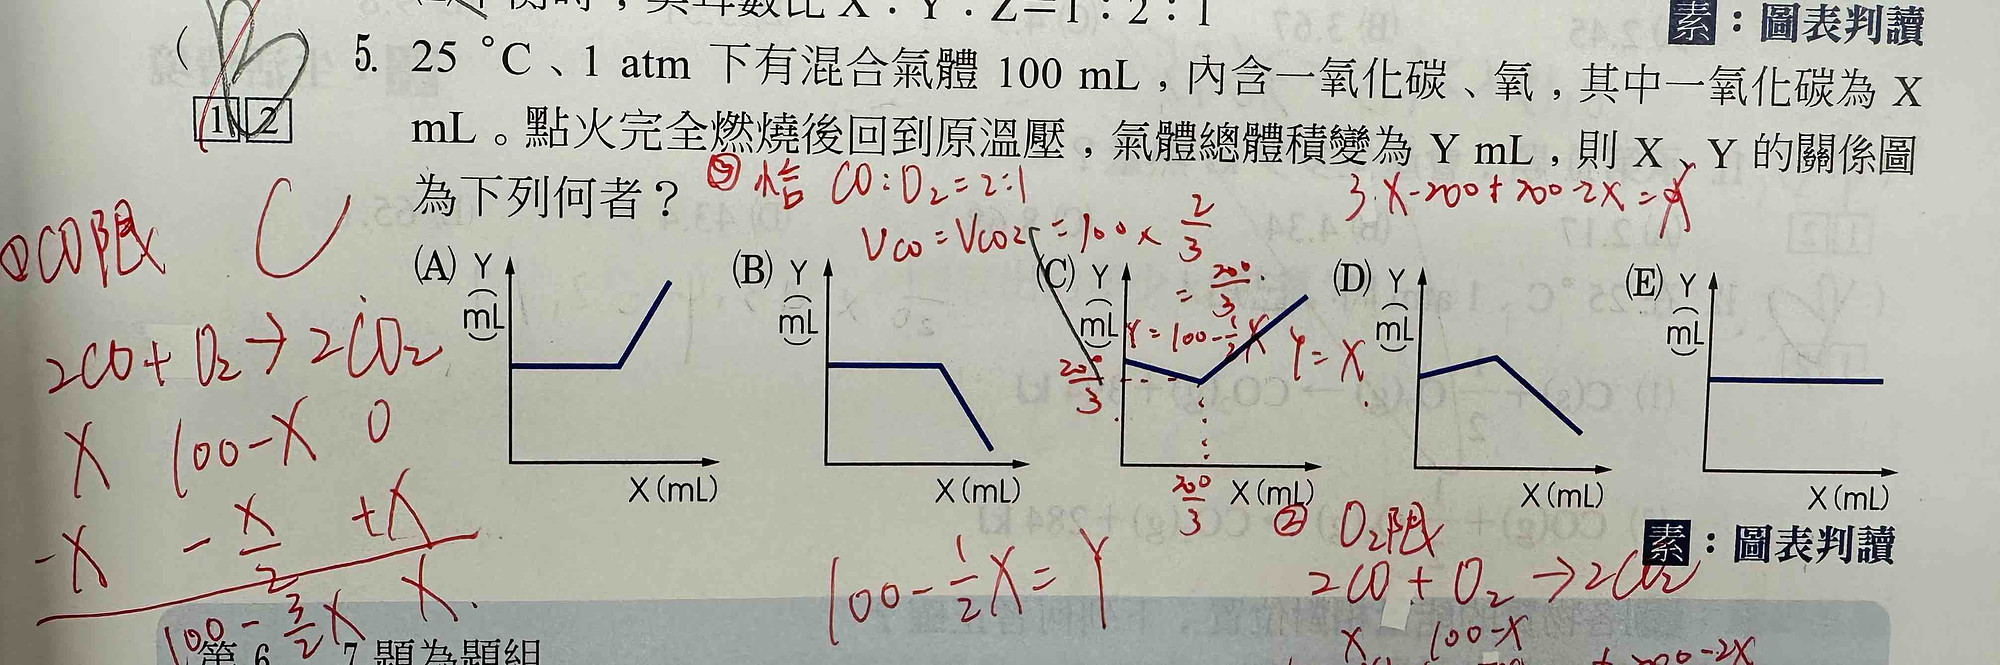 (2)平衡時,莫耳數比 X:Y:Z=1:2:1
素:圖表判讀
( B ) 5. 25 °C、1 atm 下有混合氣體 100 mL,內含一氧化碳、氧,其中一氧化碳為 X
1 2 mL。點火完全燃燒後回到原溫壓,氣體總體積變為 Y mL,則 X、Y 的關係圖
為下列何者?
③ 恰 CO:O₂=2:1
3X-200+200-2X=X
VCO=VCO₂=100×2/3
=200/3
①CO限 C
2CO+O₂→2CO₂
X 100-X 0
-X -X/2 +X
100-3/2X X.
(A) Y (mL) X(mL)
(B) Y (mL) X(mL)
(C) Y (mL) X(mL)
Y=100-1/2X Y=X
200/3
200/3
(D) Y (mL) X(mL)
(E) Y (mL) X(mL)
100-1/2X=Y
② O₂限
素:圖表判讀
2CO+O₂→2CO₂
X 100-X
+200-2X
第 6、7 題為題組